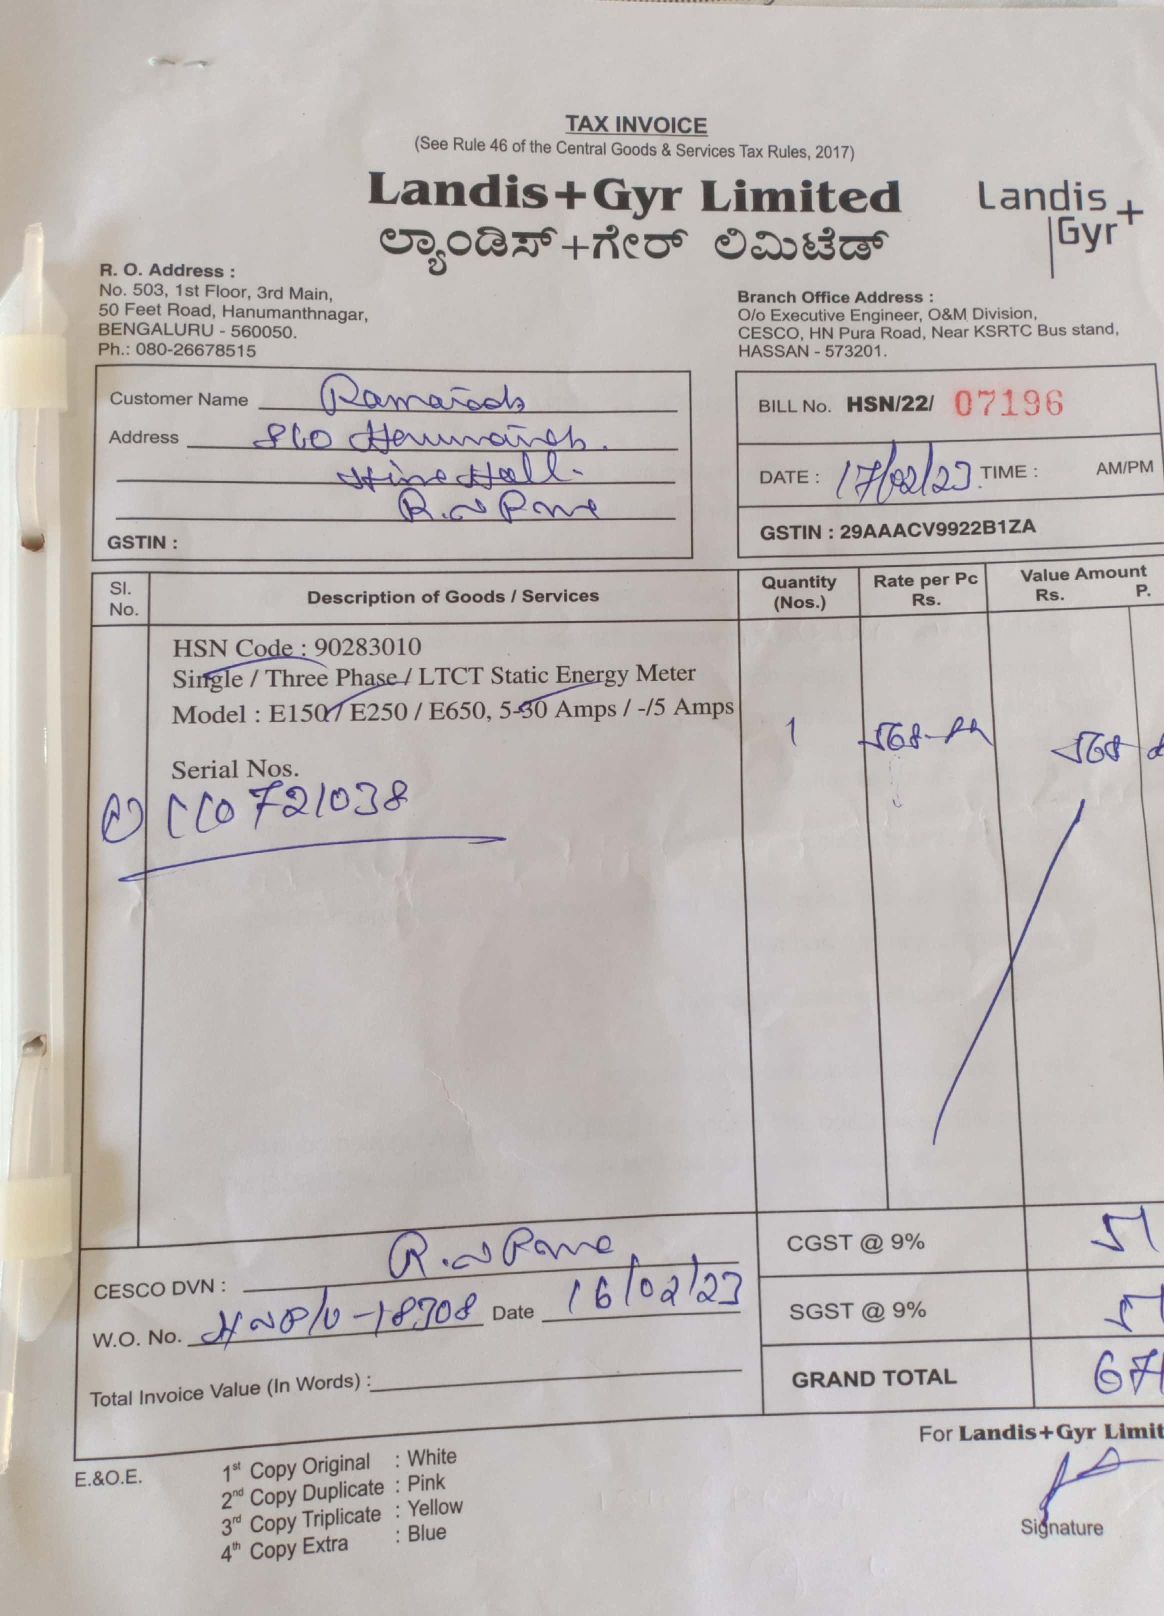 TAX INVOICE
(See Rule 46 of the Central Goods & Services Tax Rules, 2017)
Landis+Gyr Limited
ಲ್ಯಾಂಡಿಸ್+ಗೇರ್ ಲಿಮಿಟೆಡ್
Landis
Gyr+
R. O. Address :
No. 503, 1st Floor, 3rd Main,
50 Feet Road, Hanumanthnagar,
BENGALURU - 560050.
Ph.: 080-26678515
Branch Office Address :
O/o Executive Engineer, O&M Division,
CESCO, HN Pura Road, Near KSRTC Bus stand,
HASSAN - 573201.
Customer Name
Address
GSTIN :
BILL No. HSN/22/ 07196
DATE : 17/02/23 TIME : AM/PM
GSTIN : 29AAACV9922B1ZA
Sl. No. Description of Goods / Services Quantity (Nos.) Rate per Pc Rs. Value Amount Rs. P.
HSN Code : 90283010
Single / Three Phase / LTCT Static Energy Meter
Model : E150 / E250 / E650, 5-30 Amps / -/5 Amps
1 568 568
Serial Nos.
CESCO DVN :
W.O. No. Date 16/02/23
Total Invoice Value (In Words) :
CGST @ 9%
SGST @ 9%
GRAND TOTAL
For Landis+Gyr Limit
Signature
E.&O.E.
1st Copy Original : White
2nd Copy Duplicate : Pink
3rd Copy Triplicate : Yellow
4th Copy Extra : Blue